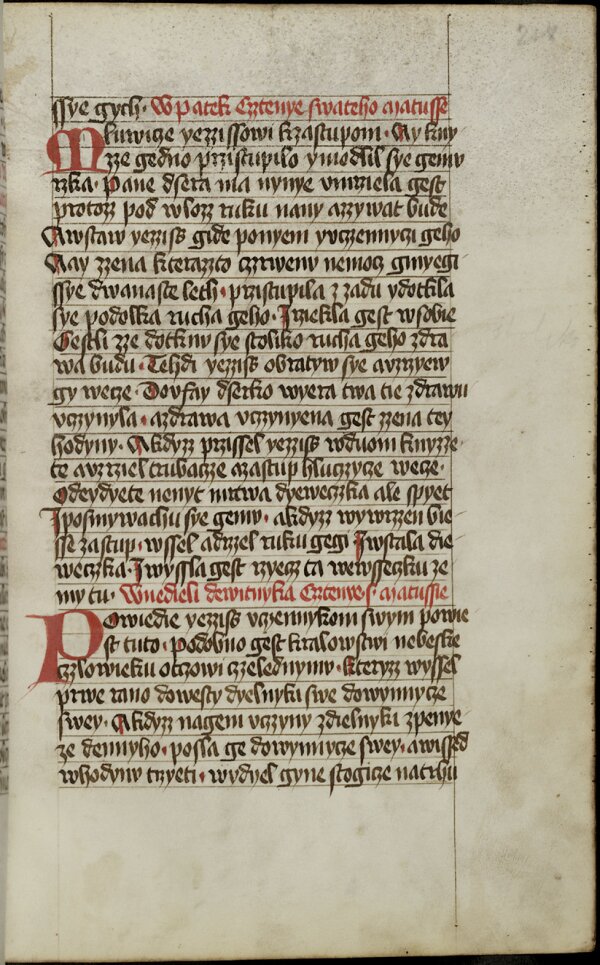 ssye gych · W patek Cztenye swateho matusse
Mluwicze yezzissowi kzastupom · Ay kny
zze gedno przistupilo ymodlil sye gemu
rzka · Pane dsera ma nynye umrziela gest
protozz pod wlozz ruku nany azzywat bude
Awstaw yezziss gide ponyem yuczennyczi geho
Aay zzena kterazzto czrweny nemocz gmyegi
ssye dwanaste lech · przistupila z zadu ydotkla
sye podolka rucha geho · Irziekla gest wsobie
Gestli zze dotknu sye stoliko rucha geho zdra
wa budu · Tehdi yezziss obratyw sye auzrzyew
gy wecze · Doufay dserko wyera twa tie zdrawu
uczynyla · azdrawa uczynyena gest zzena tey
hodyny · Akdyzz przissel yezziss wduom knyzze
te auzrziel trubacze azastup hluczycze wecze ·
Odeydyete nenyt mrtwa dyeweczka ale spyet
Iposmywachu sye gemu · akdyzz wywrzzen bie
sse zastup · wssel adrzel ruku gegi Iwstala die
weczka · Iwyssla gest rzyecz ta wewsseczku ze
my tu · Wnedieli dewitnyka Cztenye s matussie
Powiedie yezziss uczennykom swym powie
st tuto · Podobno gest kralowstwi nebeske
czlowieku otczowi czelednymu · kteryzz wyssel
prwe rano dowesty dyelnyku swe dowynnycze
swey · Akdyzz nagem uczyny zdielnyki zpenye
ze dennyho · posla ge dowynnycze swey · awissed
whodynu trzyeti · wydyel gyne stogicze natrhu